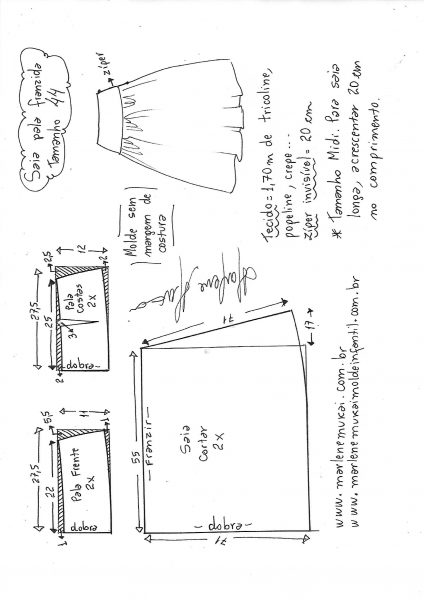 Saia pala franzida
Tamanho 44
zíper
Tecido = 1,70 m de tricoline,
popeline, crepe...
zíper invisível = 20 cm
* Tamanho Midi. Para saia
longa, acrescentar 20 cm
no comprimento.
Molde sem
margem de
costura
27,5
2,5
25
12
2
3
2
Pala
Costas
2x
dobra
27,5
5,5
22
11
1
1
Pala Frente
2x
dobra
55
Franzir
71
17
Saia
Cortar
2x
dobra
71
www.marlenemukai.com.br
www.marlenemukaimoldeinfantil.com.br